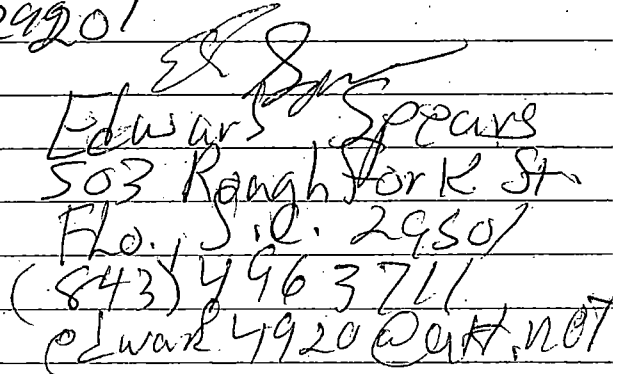 29201
Edward Spears
503 Rough Fork St.
Flo., S.C. 29501
(843) 496 3711
edward.4920@att.net